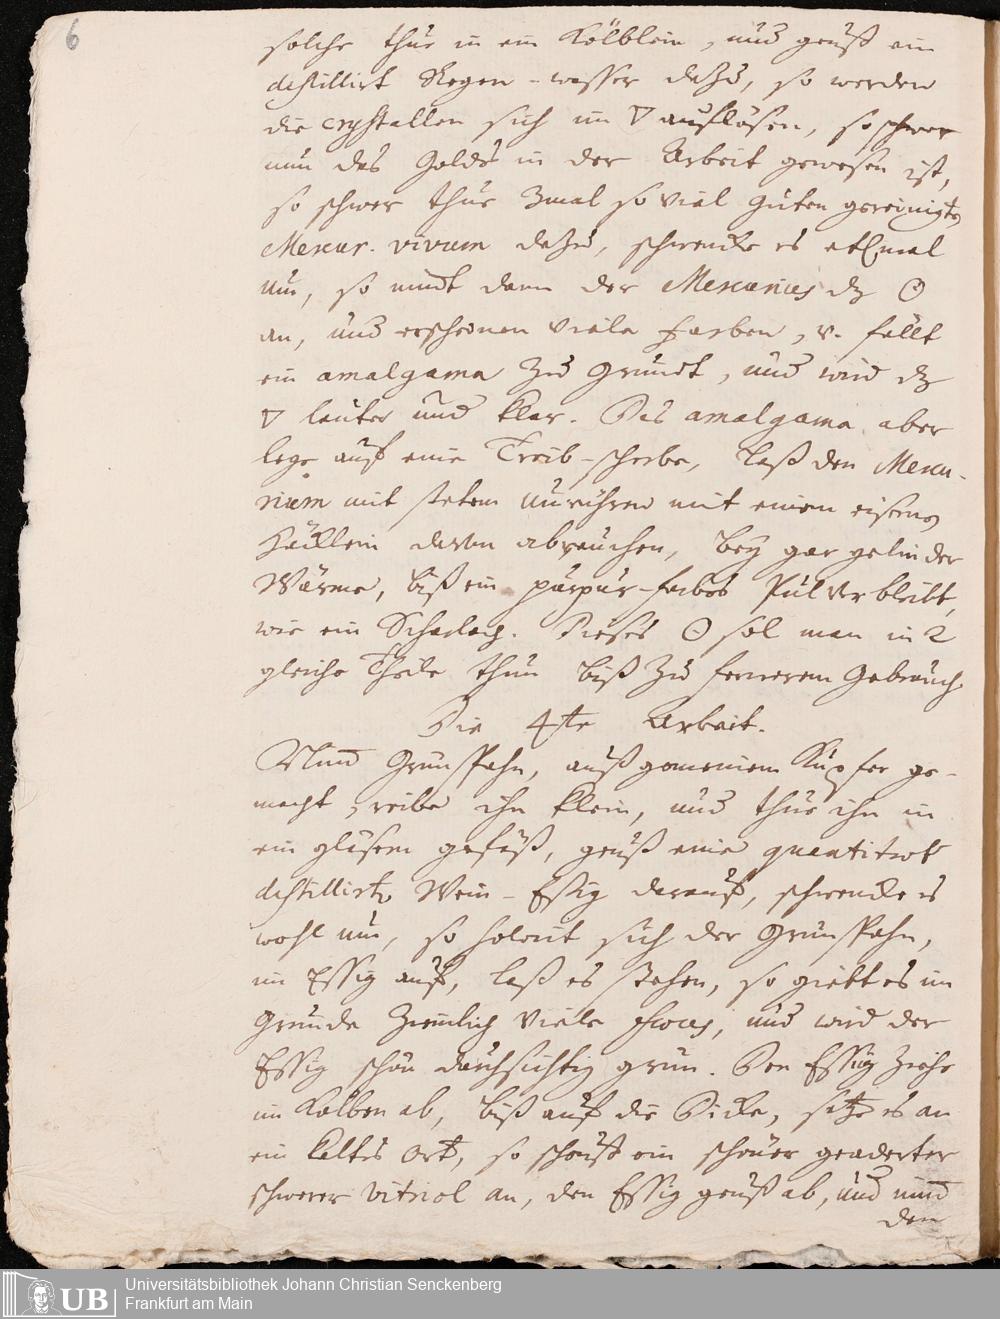 6
solche thue in ein Kölblein, und geuß ein
destillirt Regen-wasser dazu, so werden
die crystallen sich im ▽ auflösen, so schwer
nun das Gold in der Arbeit gewesen ist,
so schwer thue 3mal so viel guten gereinigten
Mercur. vivum dazu, schwencke es etlmal
um, so nimt dann der Mercurius dz ☉
an, und erscheinen viele Farben, v. fällt
ein amalgama zu Grundt, und wird dz
▽ lauter und klar. Das amalgama aber
lege auf eine Treib-scherbe, laß den Mercu-
rium mit stetem umrühren mit einem eisern
Häcklein davon abrauchen, bey gar gelinder
Wärme, biß ein purpur-farbes Pulver bleibt,
wie ein Scharlach. Dieses ☉ sol man in 2
gleiche Theile thun biß zu fernerem Gebrauch.
Die 4te Arbeit.
Nimb Grünspahn, auß gemeinem Kupfer ge-
macht, reibe ihn klein, und thue ihn in
ein gläsern gefäß, geuß eine quantitaet
destillirten Wein-Essig darauf, schwencke es
wohl um, so solvirt sich der Grünspahn,
im Essig auf, laß es stehen, so giebt es im
Grunde ziemlich viele feces, und wird der
Essig schön durchsichtig grün. Den Essig ziehe
im Kolben ab, biß auf die Dicke, setze es an
ein kaltes Ort, so scheust ein schöner geaderter
schwerer vitriol an, den Essig geuß ab, und nimb
den
Universitätsbibliothek Johann Christian Senckenberg
Frankfurt am Main
UB